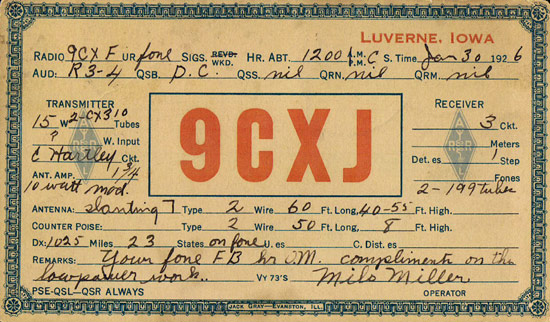 LUVERNE, IOWA
RADIO 9CXF UR fone SIGS. REVD. WKD. HR. ABT. 1200 A.M. P.M. C S. TIME Jan 30 1926
AUD: R3-4 QSB. D.C. QSS: nil QRN: nil QRM: nil
TRANSMITTER
15 W 2-CX310 Tubes
? W. Input
C Hartley Ckt.
ANT. AMP. 1 3/4
10 watt mod.
9CXJ
RECEIVER
3 Ckt.
Meters
Det. es 1 Step
Fones
2-199 tubes
ANTENNA: slanting T Type 2 Wire 60 Ft. Long, 40-55 Ft. High.
COUNTER POISE: Type 2 Wire 50 Ft. Long, 8 Ft. High.
Dx: 1025 Miles 23 States on fone U. es C. Dist. es
REMARKS: Your fone FB hr OM. compliments on the
low power work.. VY 73'S Milo Miller
PSE-QSL-QSR ALWAYS OPERATOR
JACK GRAY—EVANSTON, ILL.